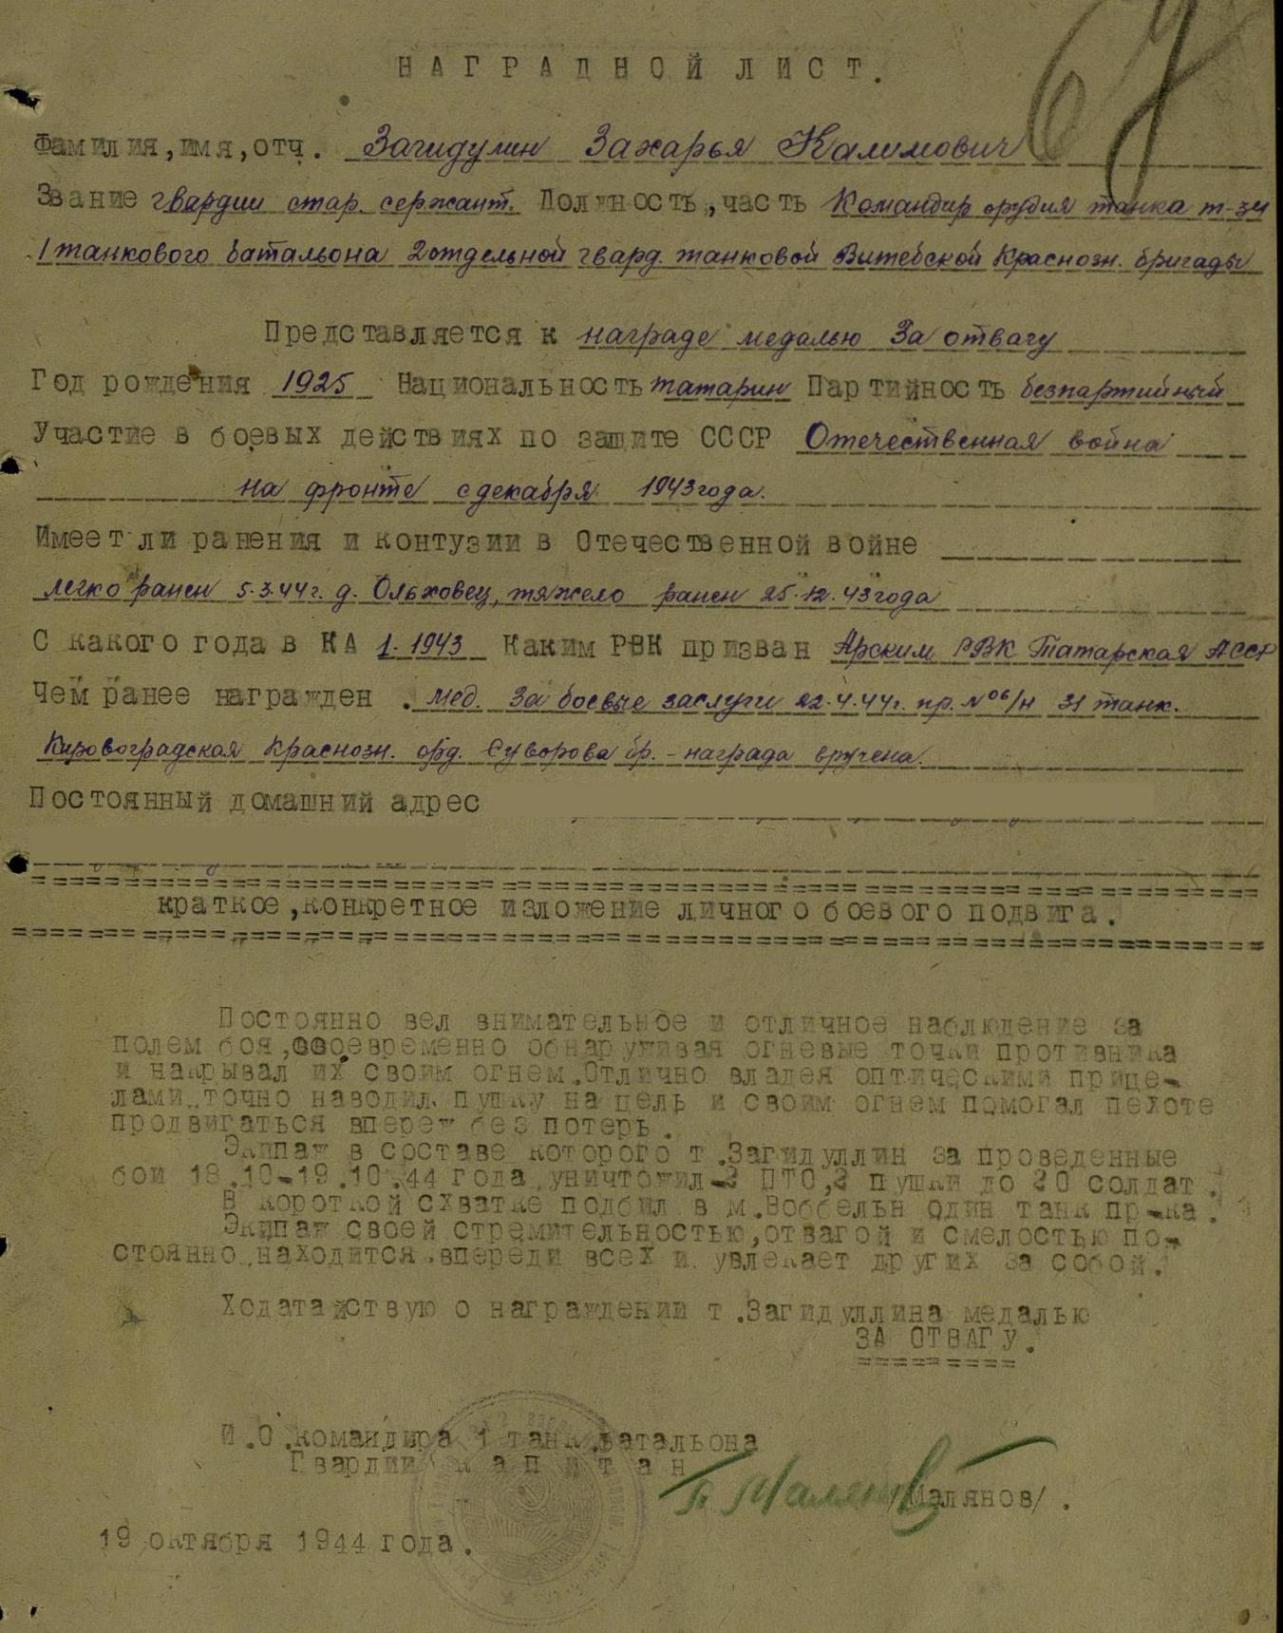 НАГРАДНОЙ ЛИСТ.
Фамилия,имя,отч. Загидулин Захарья Калимович
Звание гвардии стар. сержант. Должность,часть Командир орудия танка т-34
1 танкового батальона 2 отдельной гвард. танковой Витебской Краснозн. бригады
Представляется к награде медалью За отвагу
Год рождения 1925 Национальность татарин Партийность безпартийный
Участие в боевых действиях по защите СССР Отечественная война
на фронте с декабря 1943 года.
Имеет ли ранения и контузии в Отечественной войне
легко ранен 5.3.44г. д. Ольховец, тяжело ранен 25.12.43 года
С какого года в КА 1.1943 Каким РВК призван Арским РВК Татарская АССР
Чем ранее награжден . мед. За боевые заслуги 22.4.44г. пр. №06/н 31 танк.
Кировоградская Краснозн. орд. Суворова бр. - награда вручена.
Постоянный домашний адрес
краткое,конкретное изложение личного боевого подвига.
Постоянно вел внимательное и отличное наблюдение за
полем боя, своевременно обнаруживая огневые точки противника
и накрывал их своим огнем.Отлично владея оптическими прице-
лами,точно наводил пушку на цель и своим огнем помогал пехоте
продвигаться вперед без потерь.
Экипаж в составе которого т.Загидуллин за проведенные
бои 18.10-19.10.44 года уничтожил-2 ПТО,2 пушки до 20 солдат.
В короткой схватке подбил в м.Воббельн один танк пр-ка.
Экипаж своей стремительностью,отвагой и смелостью по-
стоянно находится впереди всех и увлекает других за собой.
Ходатайствую о награждении т.Загидуллина медалью
ЗА ОТВАГУ.
И.О.командира 1 танк.батальона
Гвардии капитан
/Малянов/.
19 октября 1944 года.